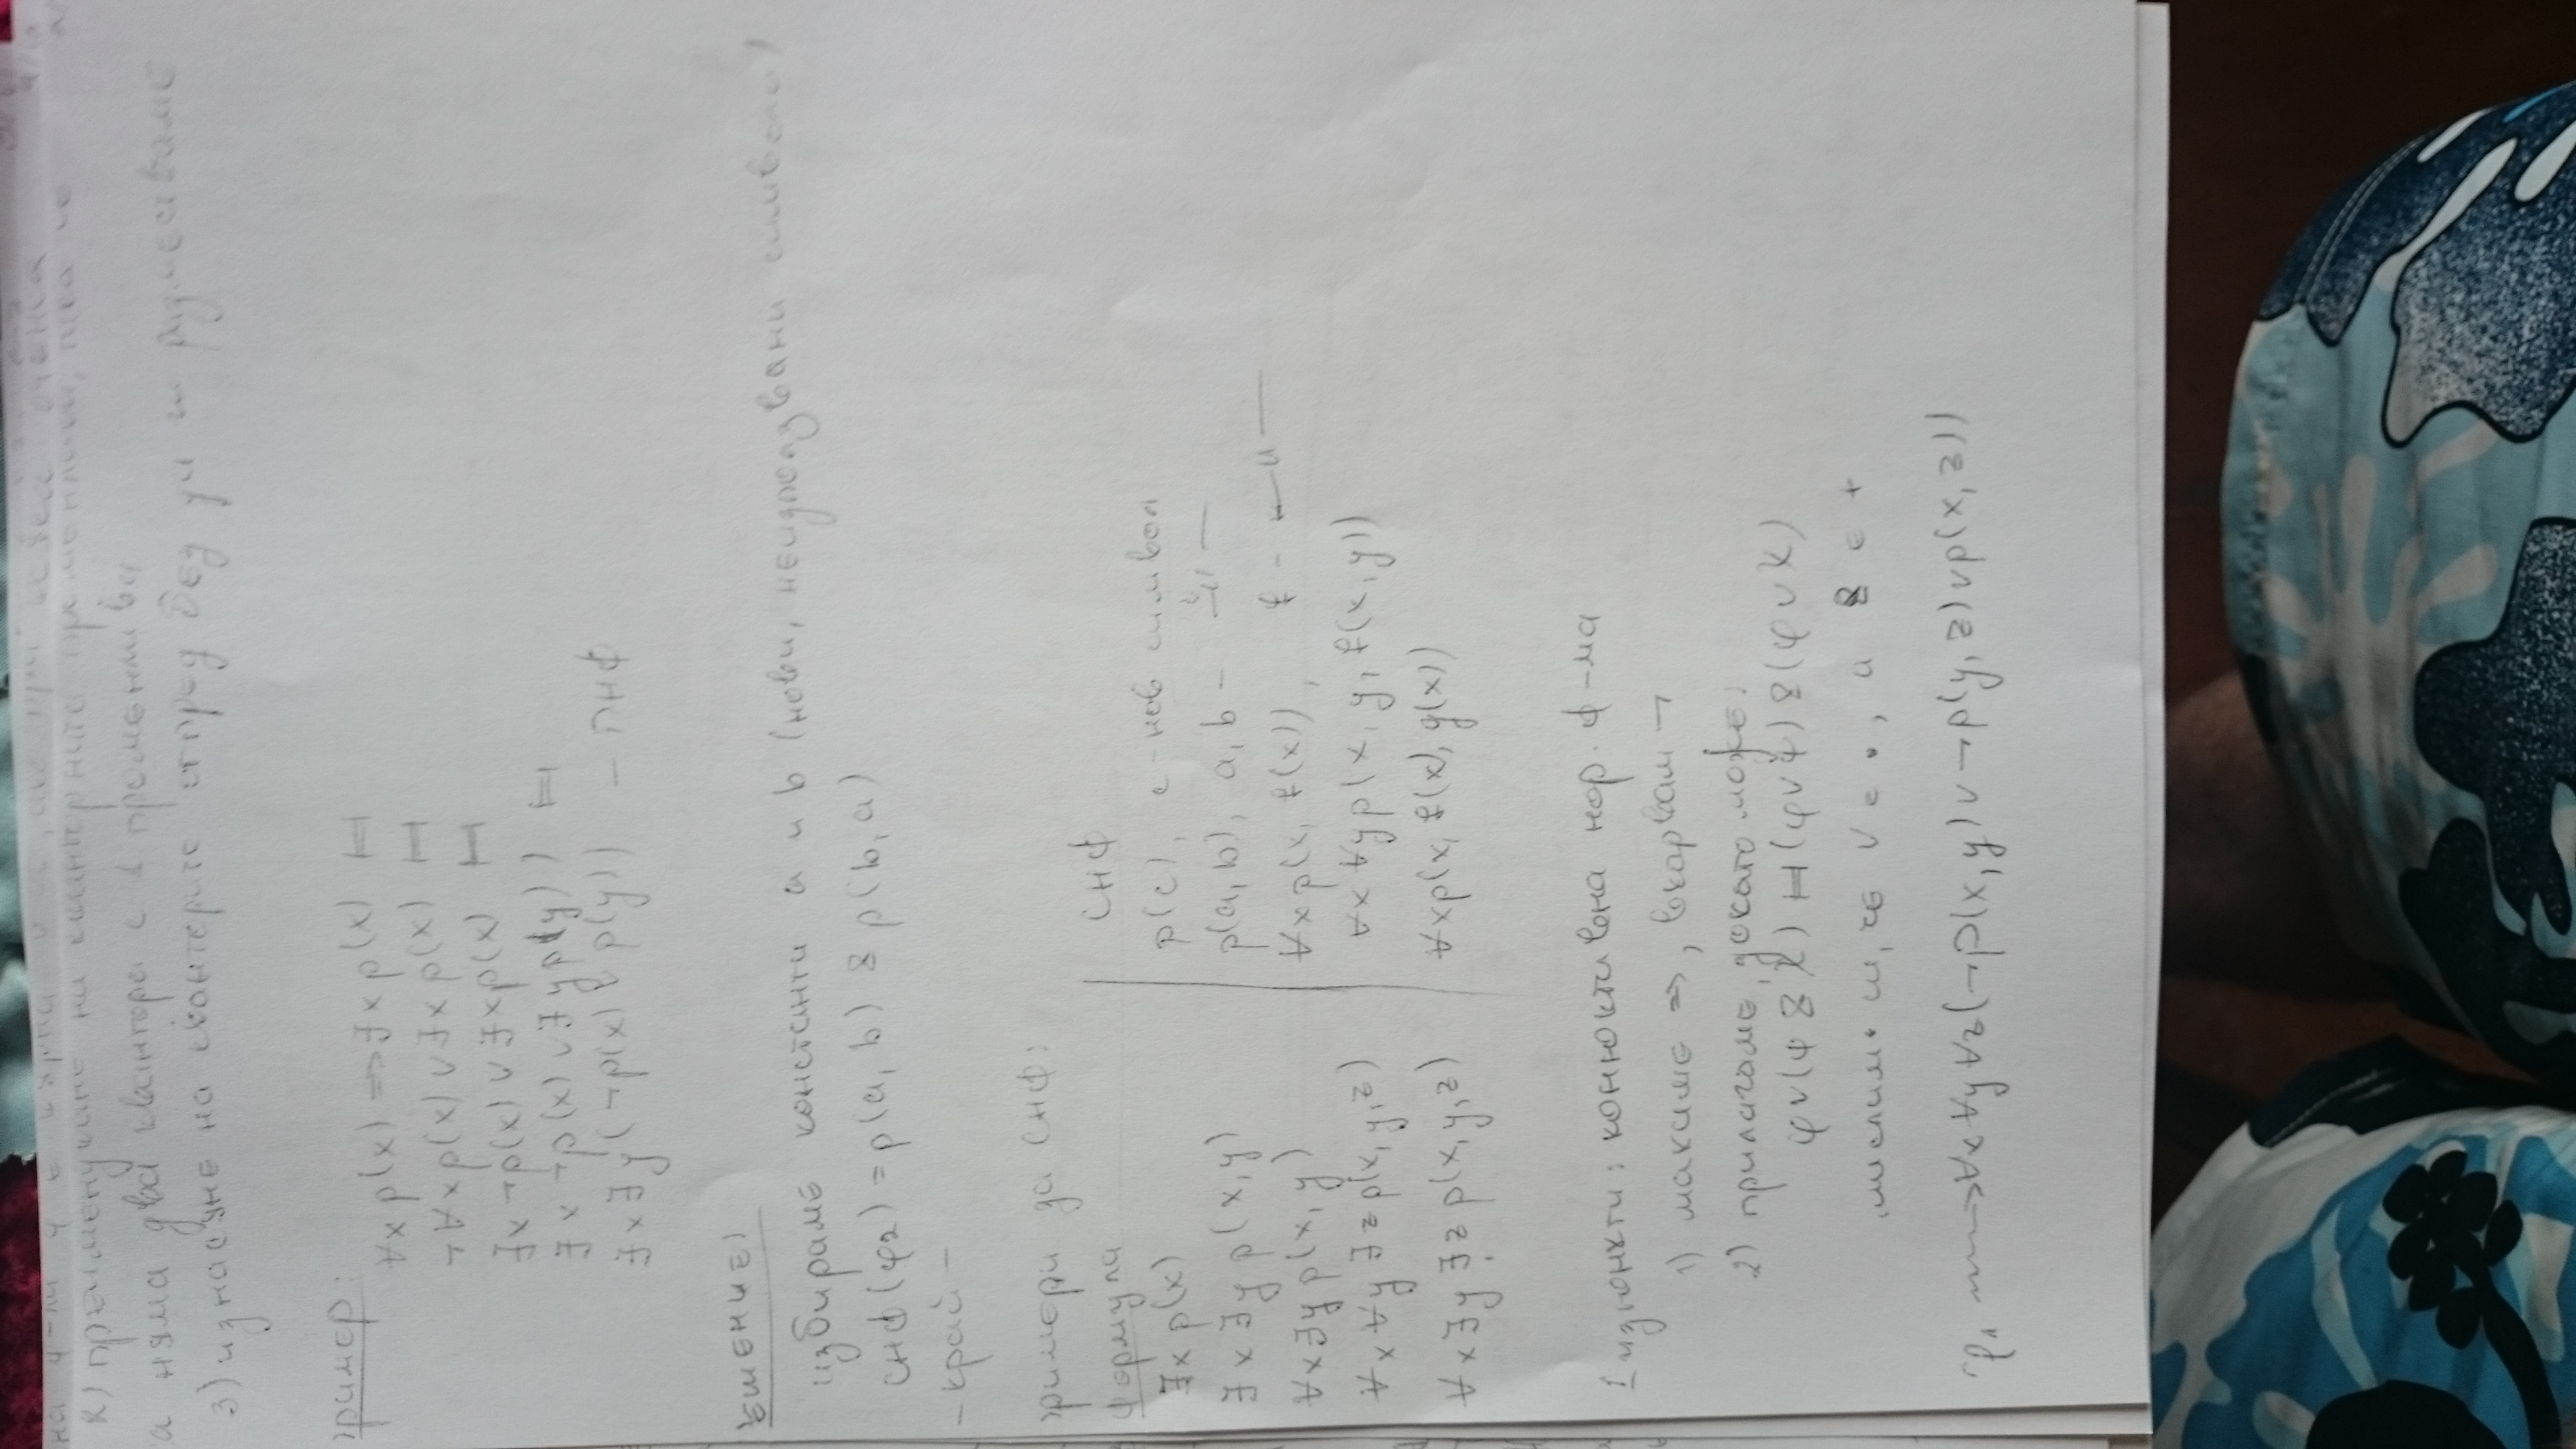 R) преименуване на квантерните променливи, така че
а няма два квантора с 1 променлива
3) изнасяне на квантерите отпред без да ги размесваме
пример:
∀x p(x) => ∃x p(x) ⊨
¬∀x p(x) ∨ ∃x p(x) ⊨
∃x ¬p(x) ∨ ∃x p(x) ⊨
∃x ¬p(x) ∨ ∃y p(y)) ⊨
∃x∃y (¬p(x) ∨ p(y)) - ПНФ
решение)
избираме константи a и b (нови, неизползвани символи)
СНФ(φ2) = p(a,b) & p(b,a)
- край -
примери за СНФ:
формула СНФ
∃x p(x) p(c), c - нов символ
∃x∃y p(x,y) p(a,b), a,b - —"—
∀x∃y p(x,y) ∀x p(x, f(x)), f - —"—
∀x∀y∃z p(x,y,z) ∀x∀y p(x,y,f(x,y))
∀x∃y∃z p(x,y,z) ∀x p(x, f(x), g(x))
Дизюнкти: конюнктивна нор. ф-ма
1) махаме =>, вкарвам ¬
2) прилагаме, докато може:
φ∨(ψ & χ) ⊨ (φ∨ψ) & (φ∨χ)
мислим си, че ∨ е •, а & е +
φ1 ⟿ ∀x∀y∀z(¬p(x,y) ∨ ¬p(y,z) ∨ p(x,z))